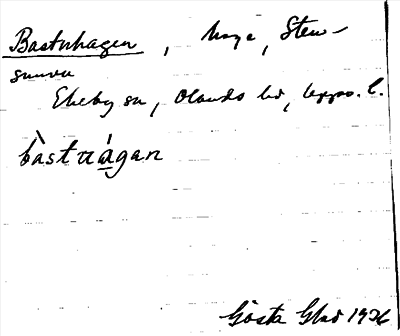 Bastuhagen, hage, Sten-
sunna
Ekeby sn, Olands hd, Upps. l.
bàstuágan
Gösta Glad 1926